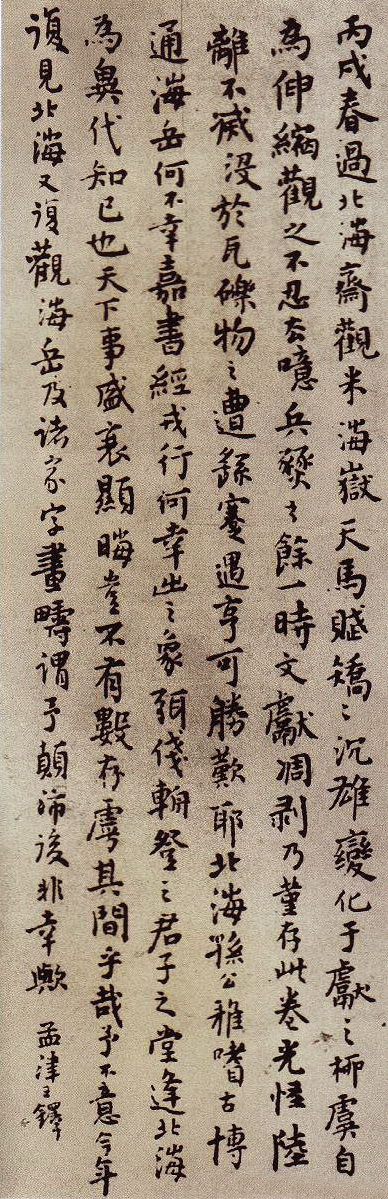 丙戌春過北海齋觀米海嶽天馬賦矯〻沉雄變化于獻之柳虞自
為伸縮觀之不忍去噫兵燹之餘一時文獻凋剥乃董存此卷光怪陸
離不滅没於瓦礫物之遭繇蹇遇亨可勝歎耶北海孫公雅嗜古博
通海岳何不幸嘉書經戎行何幸出之象弭後輈登之君子之堂逢北海
為異代知已也天下事盛衰顯晦豈不有數存虖其間乎哉予不意今年
復見北海又復觀海岳及諸家字畫疇謂予顛沛後非幸歟 孟津王鐸